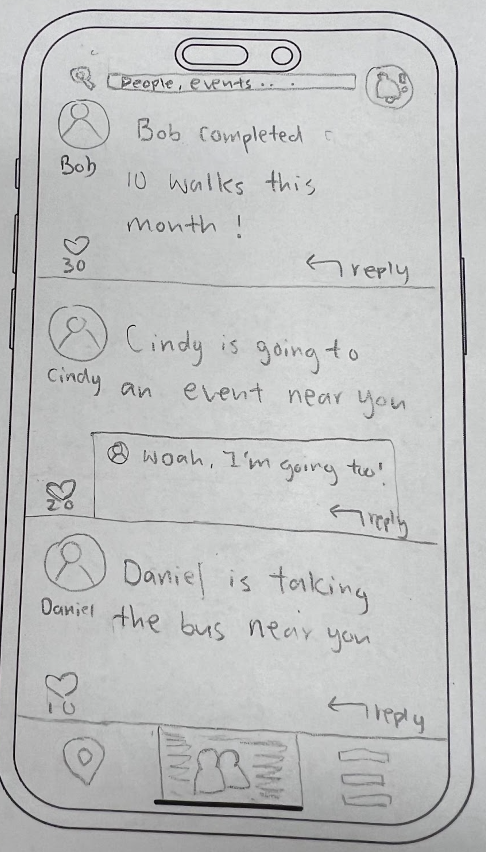 People, events . . . .
Bob completed
Bob
10 walks this
month !
30
reply
Cindy is going to
Cindy
an event near you
Woah, I'm going too!
20
reply
Daniel is taking
Daniel
the bus near you
10
reply